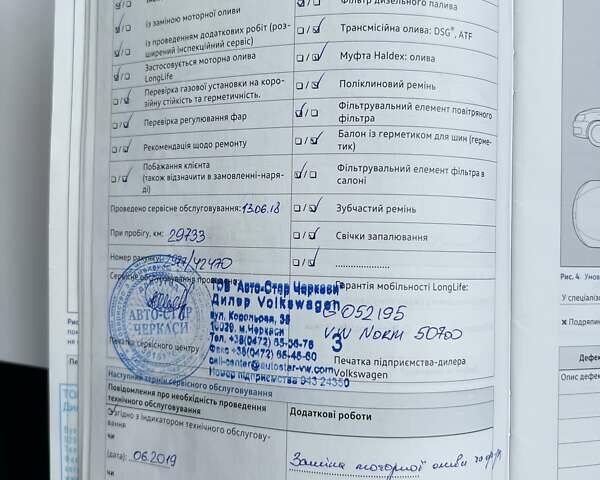 із заміною моторної оливи
Фільтр дизельного палива
із проведенням додаткових робіт (роз-
ширений інспекційний сервіс)
Трансмісійна олива: DSG®, ATF
Застосовується моторна олива
LongLife
Муфта Haldex: олива
Перевірка газової установки на коро-
зійну стійкість та герметичність.
Поліклиновий ремінь
Перевірка регулювання фар
Фільтрувальний елемент повітряного
фільтра
Рекомендація щодо ремонту
Балон із герметиком для шин (герме-
тик)
Побажання клієнта
(також відзначити в замовленні-наря-
ді)
Фільтрувальний елемент фільтра в
салоні
Проведено сервісне обслуговування: 13.06.18
Зубчастий ремінь
При пробігу, км: 29733
Свічки запалювання
Номер рахунку: /42470
Сервісне обслуговування
Гарантія мобільності LongLife:
"Авто-Стар Черкаси"
Дилер Volkswagen
вул. Корольова, 38
м.Черкаси
Тел. +38(0472) 65-36-76
Факс +38(0472) 66-46-60
call-center@autostar-vw.com
Номер підприємства 943 24350
З
АВТО-СТАР
ЧЕРКАСИ
G 052195
VW Norm 50700
Печатка сервісного центру
Печатка підприємства-дилера
Volkswagen
Наступний термін сервісного обслуговування
Повідомлення про необхідність проведення
технічного обслуговування
Додаткові роботи
Згідно з індикатором технічного обслугову-
вання
чи
(дата): 06.2019
Заміна моторної оливи
чи
Рис. 4 Умов
У спеціаліз
Дефек
Опис дефек